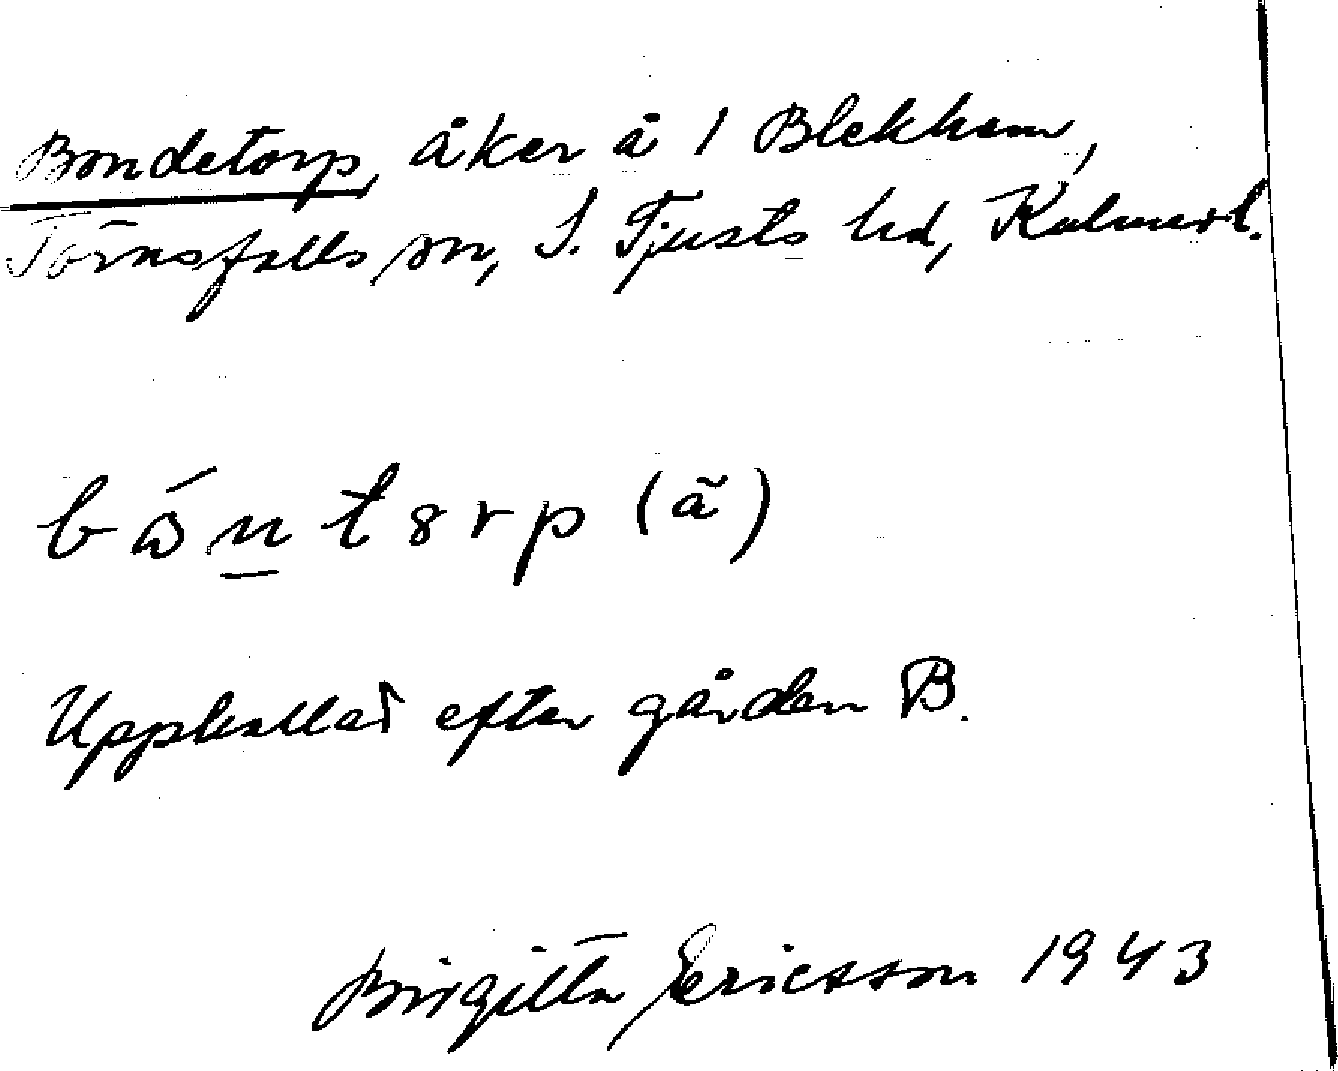 Bondetorp, åker å 1 Blekhem,
Törnsfalls sn, S. Tjusts hd, Kalmar l.
bón̲t8rp (ã)
Uppkallad efter gården B.
Birgitta Ericsson 1943